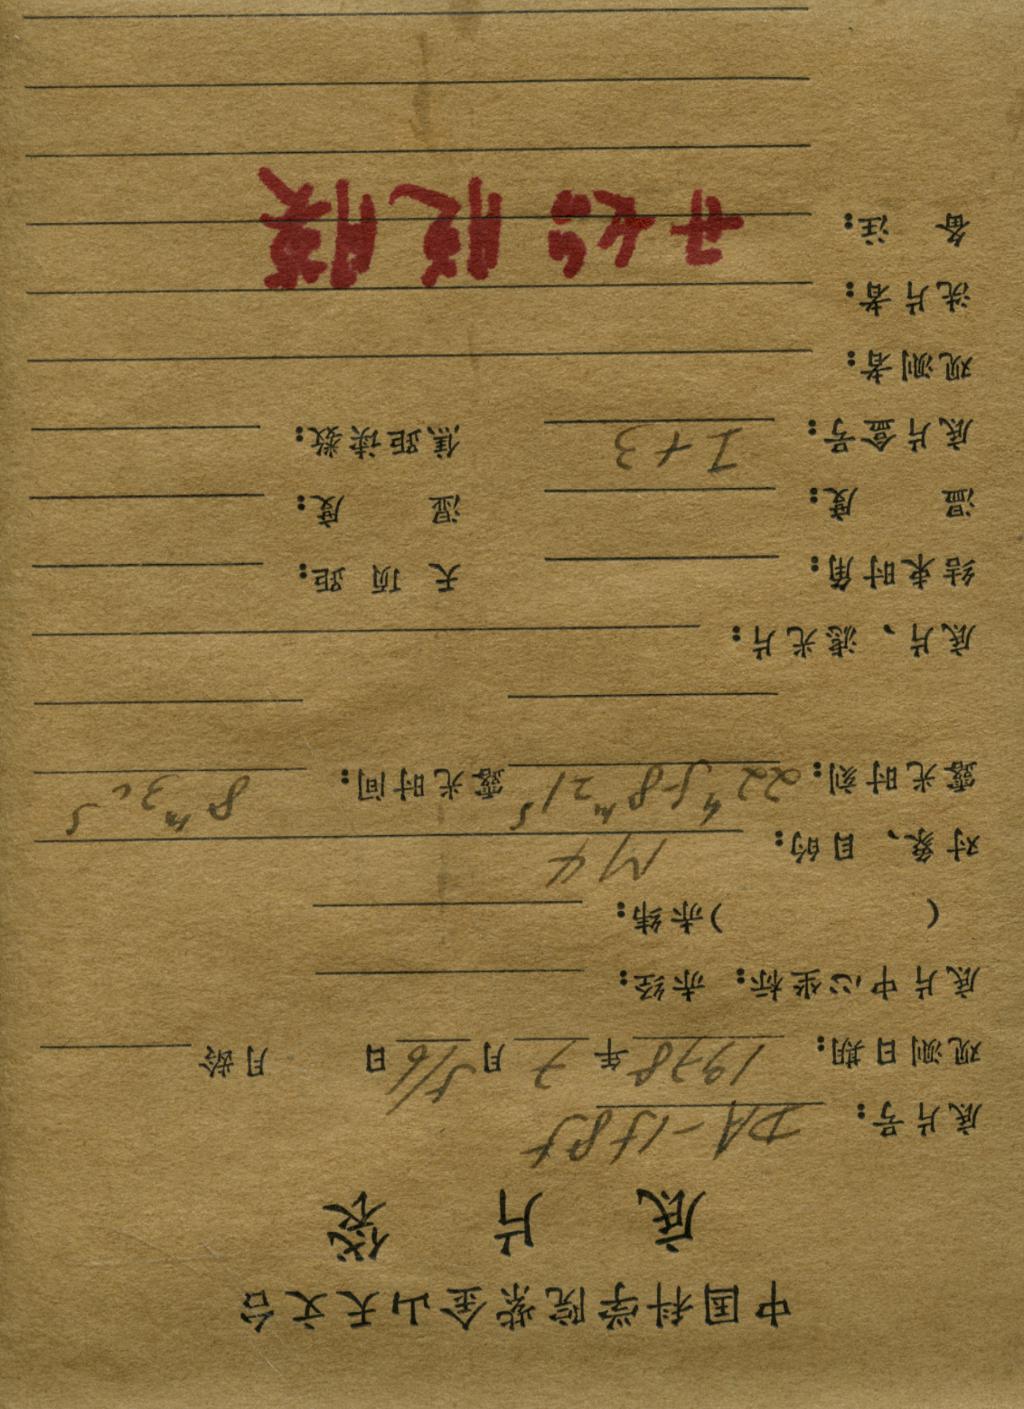 中国科学院紫金山天文台
底片袋
底片号: DA-1585
观测日期: 1978年7月5/6日 月龄
底片中心坐标: 赤经:
( )赤纬:
对象、目的: M4
露光时刻: 22h58m21s 露光时间: 8m30s
底片、滤光片:
结束时角: 天顶距:
温度: 湿度:
底片盒号: I+3 焦距读数:
观测者:
洗片者:
备注: 开始脱膜